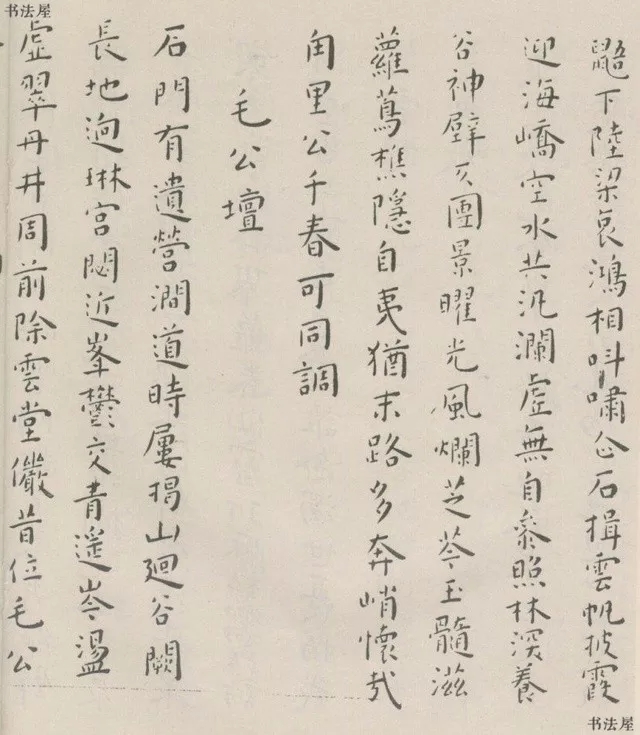 书法屋
鼯下陸梁哀鴻相叫嘯公石揖雲帆披霞
迎海嶠空水共汎瀾虛無自參照林深養
谷神壁仄團景曜光風爛芝苓玉髓滋
蘿蔦樵隱自夷猶末路多奔峭懷哉
甪里公千春可同調
毛公壇
石門有遺營澗道時屢揭山迴谷闕
長地逈琳宮閟近峯鬱交青遥岑盪
虛翠丹井周前除雲堂儼昔位毛公
书法屋